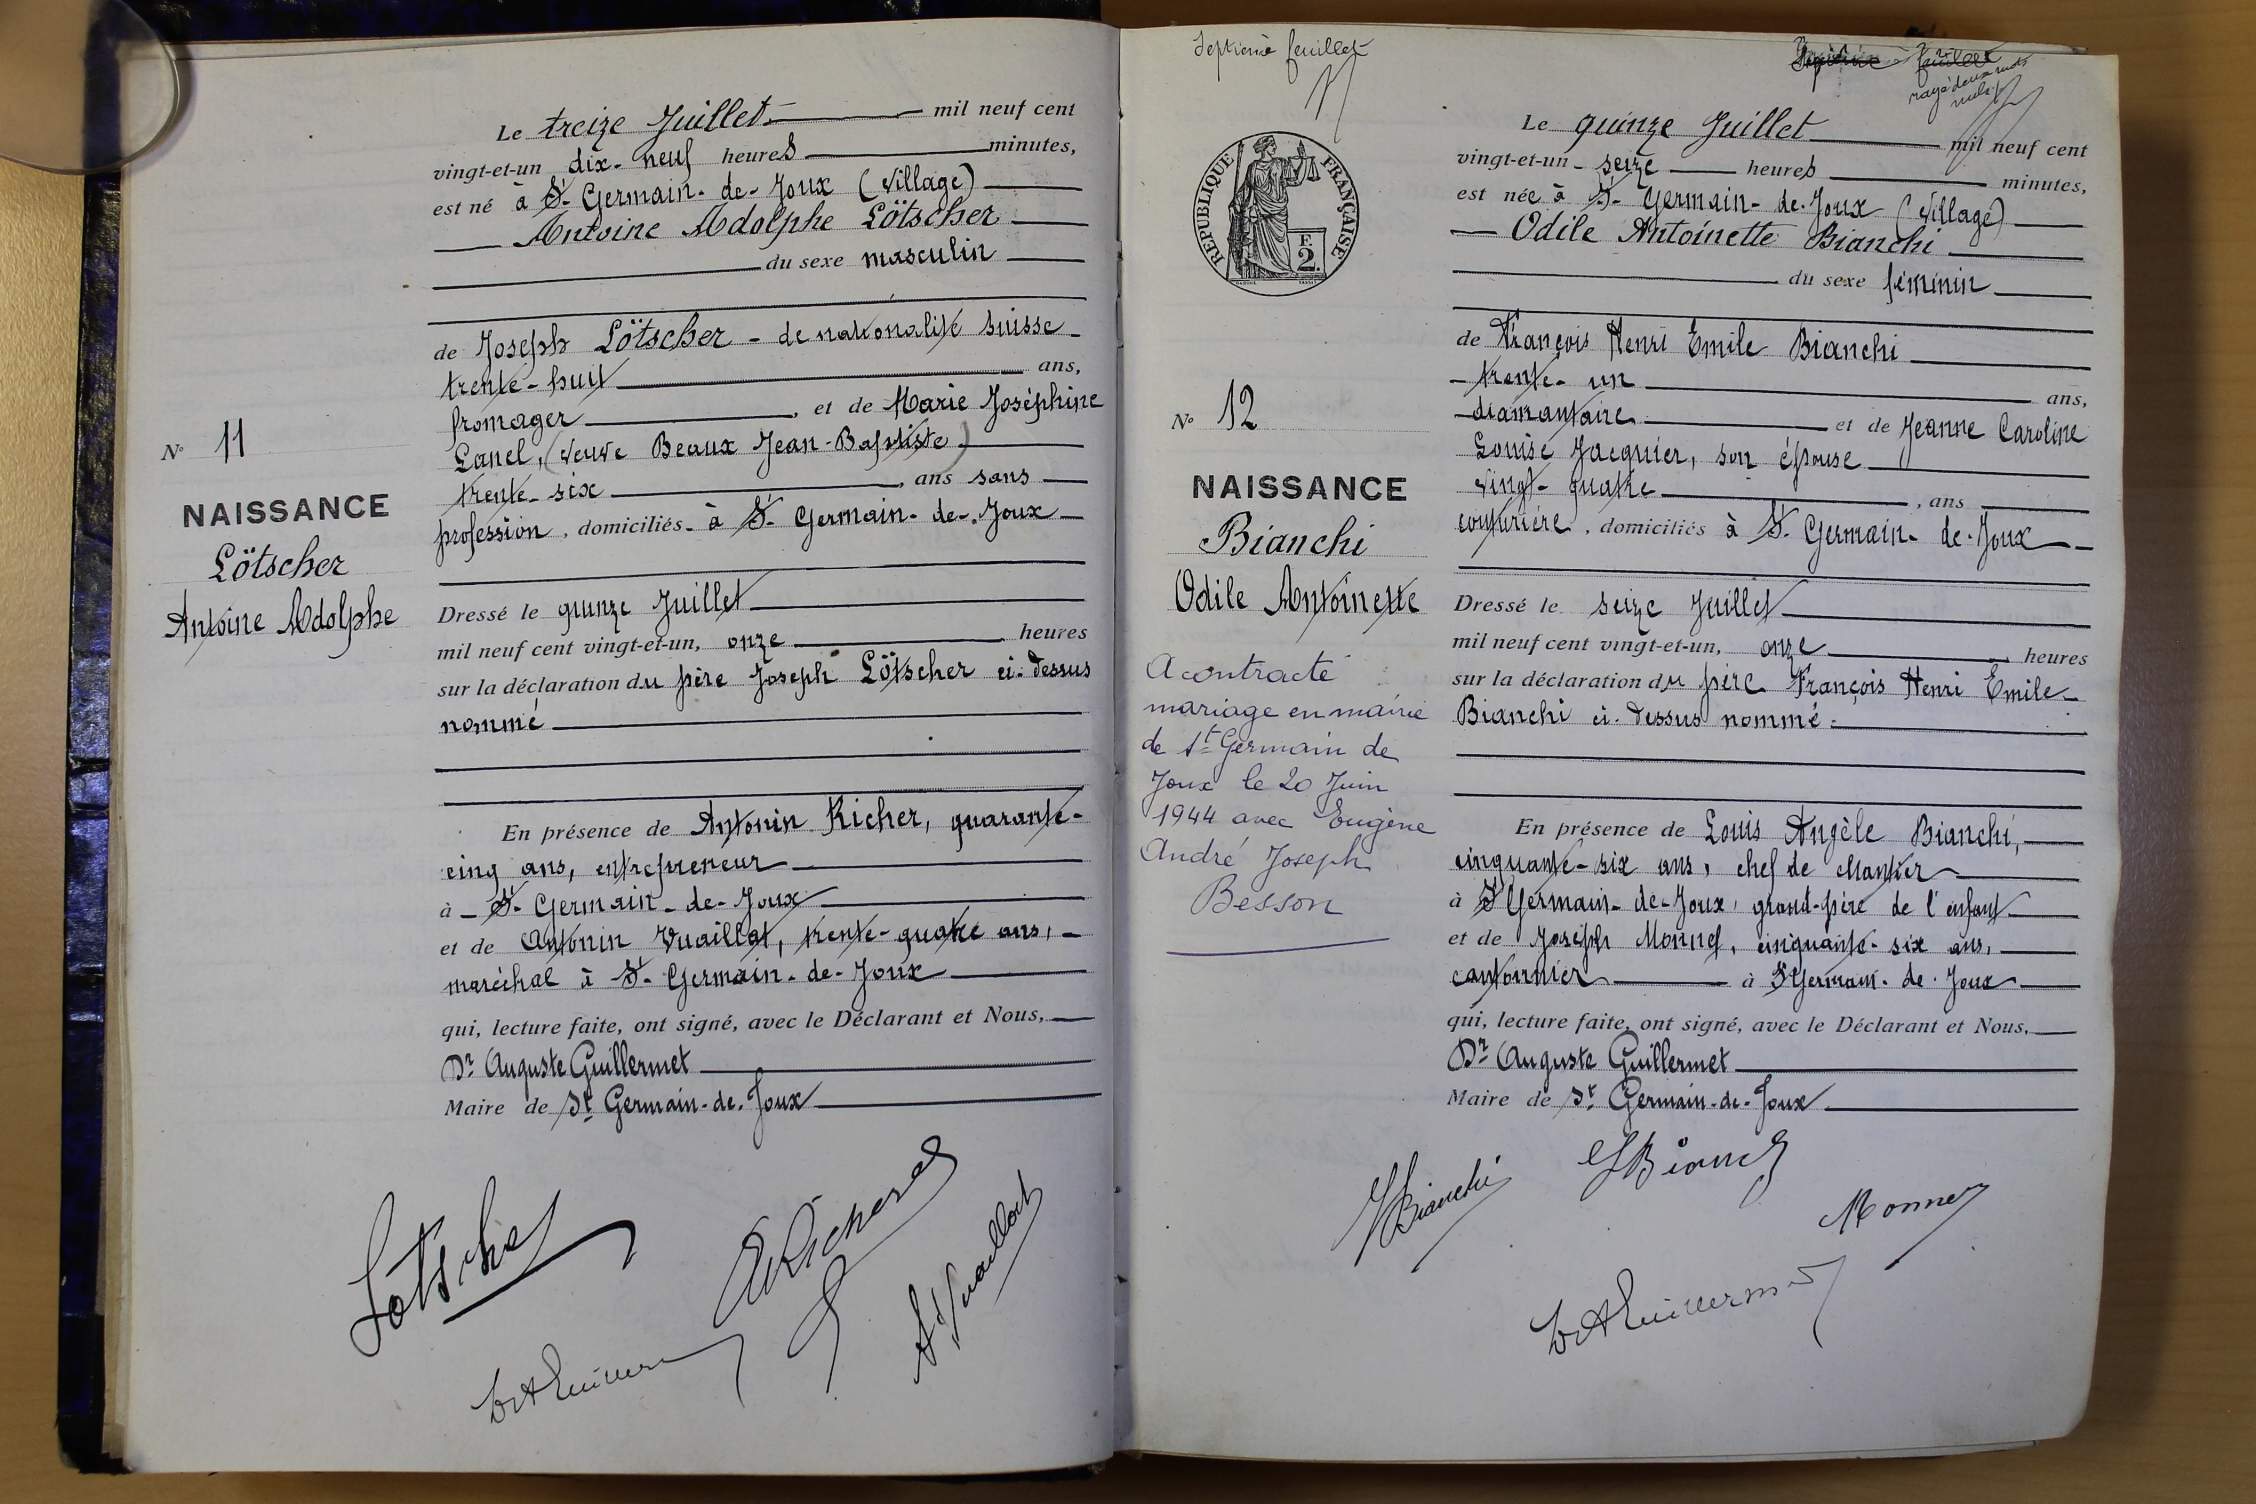 Le treize Juillet mil neuf cent
vingt-et-un dix-neuf heures minutes,
est né à St Germain-de-Joux (village)
Antoine Adolphe Lötscher
du sexe masculin
de Joseph Lötscher - de nationalité suisse
trente-huit ans,
fromager, et de Marie Joséphine
Lanel, (veuve Beaux Jean-Baptiste)
trente-six, ans sans
profession, domiciliés à St Germain-de-Joux
N° 11
NAISSANCE
Lötscher
Antoine Adolphe
Dressé le quinze Juillet
mil neuf cent vingt-et-un, onze heures
sur la déclaration du père Joseph Lötscher ci-dessus
nommé
En présence de Antonin Richer, quarante-
cinq ans, entrepreneur
à St Germain-de-Joux
et de Antonin Vuaillat, trente-quatre ans,
maréchal à St Germain-de-Joux
qui, lecture faite, ont signé, avec le Déclarant et Nous,
Dr Auguste Guillermet
Maire de St Germain-de-Joux
Lötscher
Septième feuillet
Septième feuillet
rayé deux mots
nuls
REPUBLIQUE FRANÇAISE
F.
2.
Le quinze Juillet mil neuf cent
vingt-et-un - seize heures minutes,
est née à St Germain-de-Joux (village)
Odile Antoinette Bianchi
du sexe féminin
de François Henri Emile Bianchi
trente-un ans,
diamantaire et de Jeanne Caroline
Louise Jacquier, son épouse
vingt-quatre, ans
couturière, domiciliés à St Germain-de-Joux
N° 12
NAISSANCE
Bianchi
Odile Antoinette
A contracté
mariage en mairie
de St Germain de
Joux le 20 Juin
1944 avec Eugène
André Joseph
Besson
Dressé le seize Juillet
mil neuf cent vingt-et-un, onze heures
sur la déclaration du père François Henri Emile
Bianchi ci-dessus nommé
En présence de Louis Angèle Bianchi,
cinquante-six ans, chef de chantier
à St Germain-de-Joux, grand-père de l'enfant
et de Joseph Monnet, cinquante-six ans,
cantonnier à St Germain-de-Joux
qui, lecture faite, ont signé, avec le Déclarant et Nous,
Dr Auguste Guillermet
Maire de St Germain-de-Joux
Bianchi
Bianchi
Monnet
Dr A Guillermet